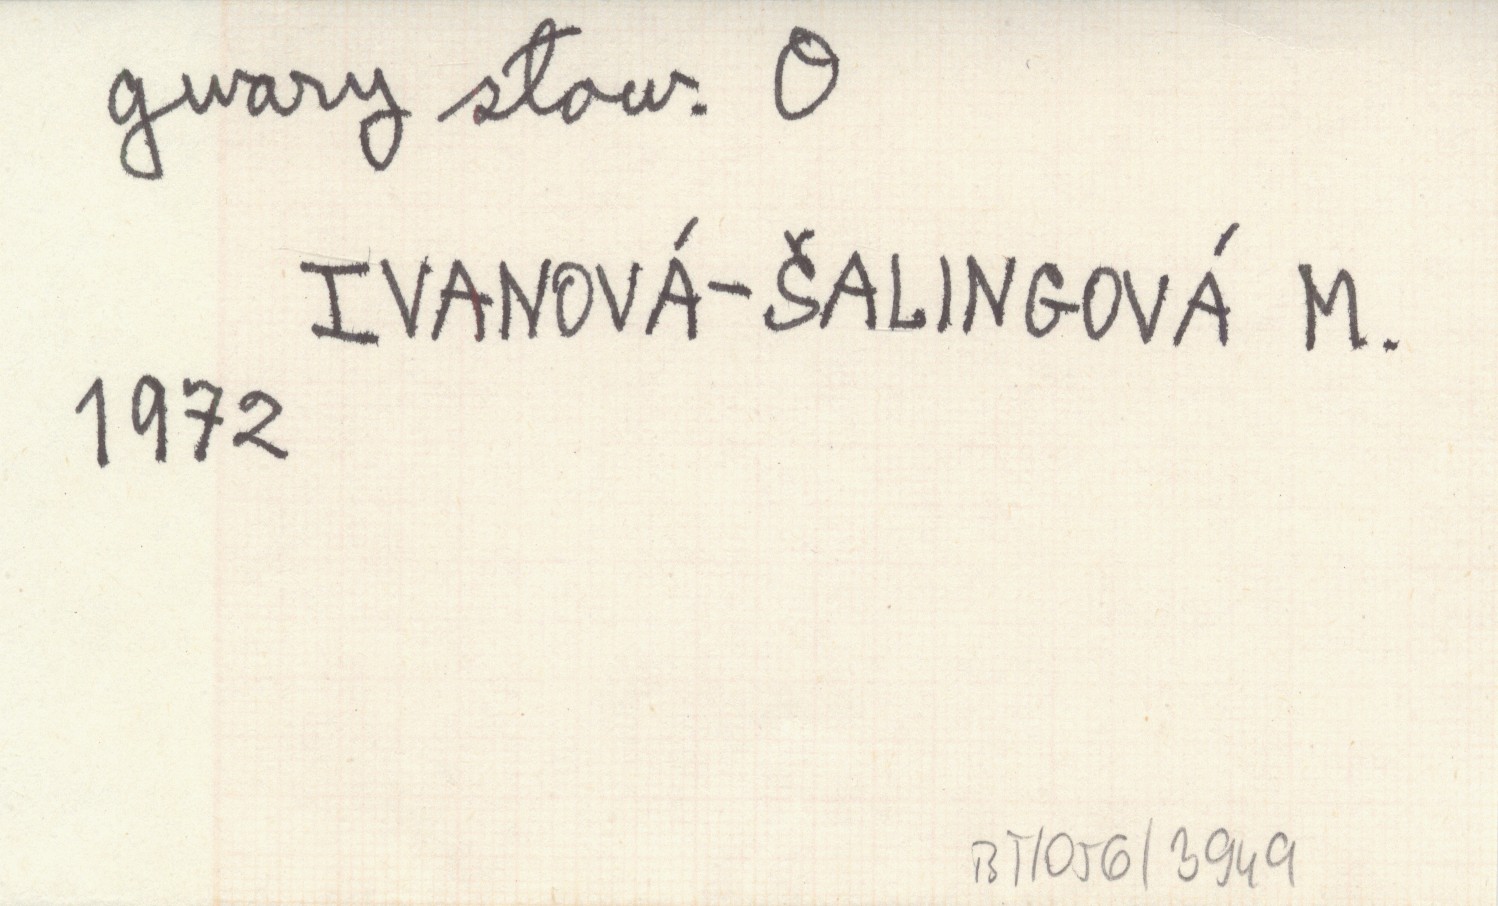 gwary słow. O
IVANOVÁ-ŠALINGOVÁ M.
1972
BT/056/3949